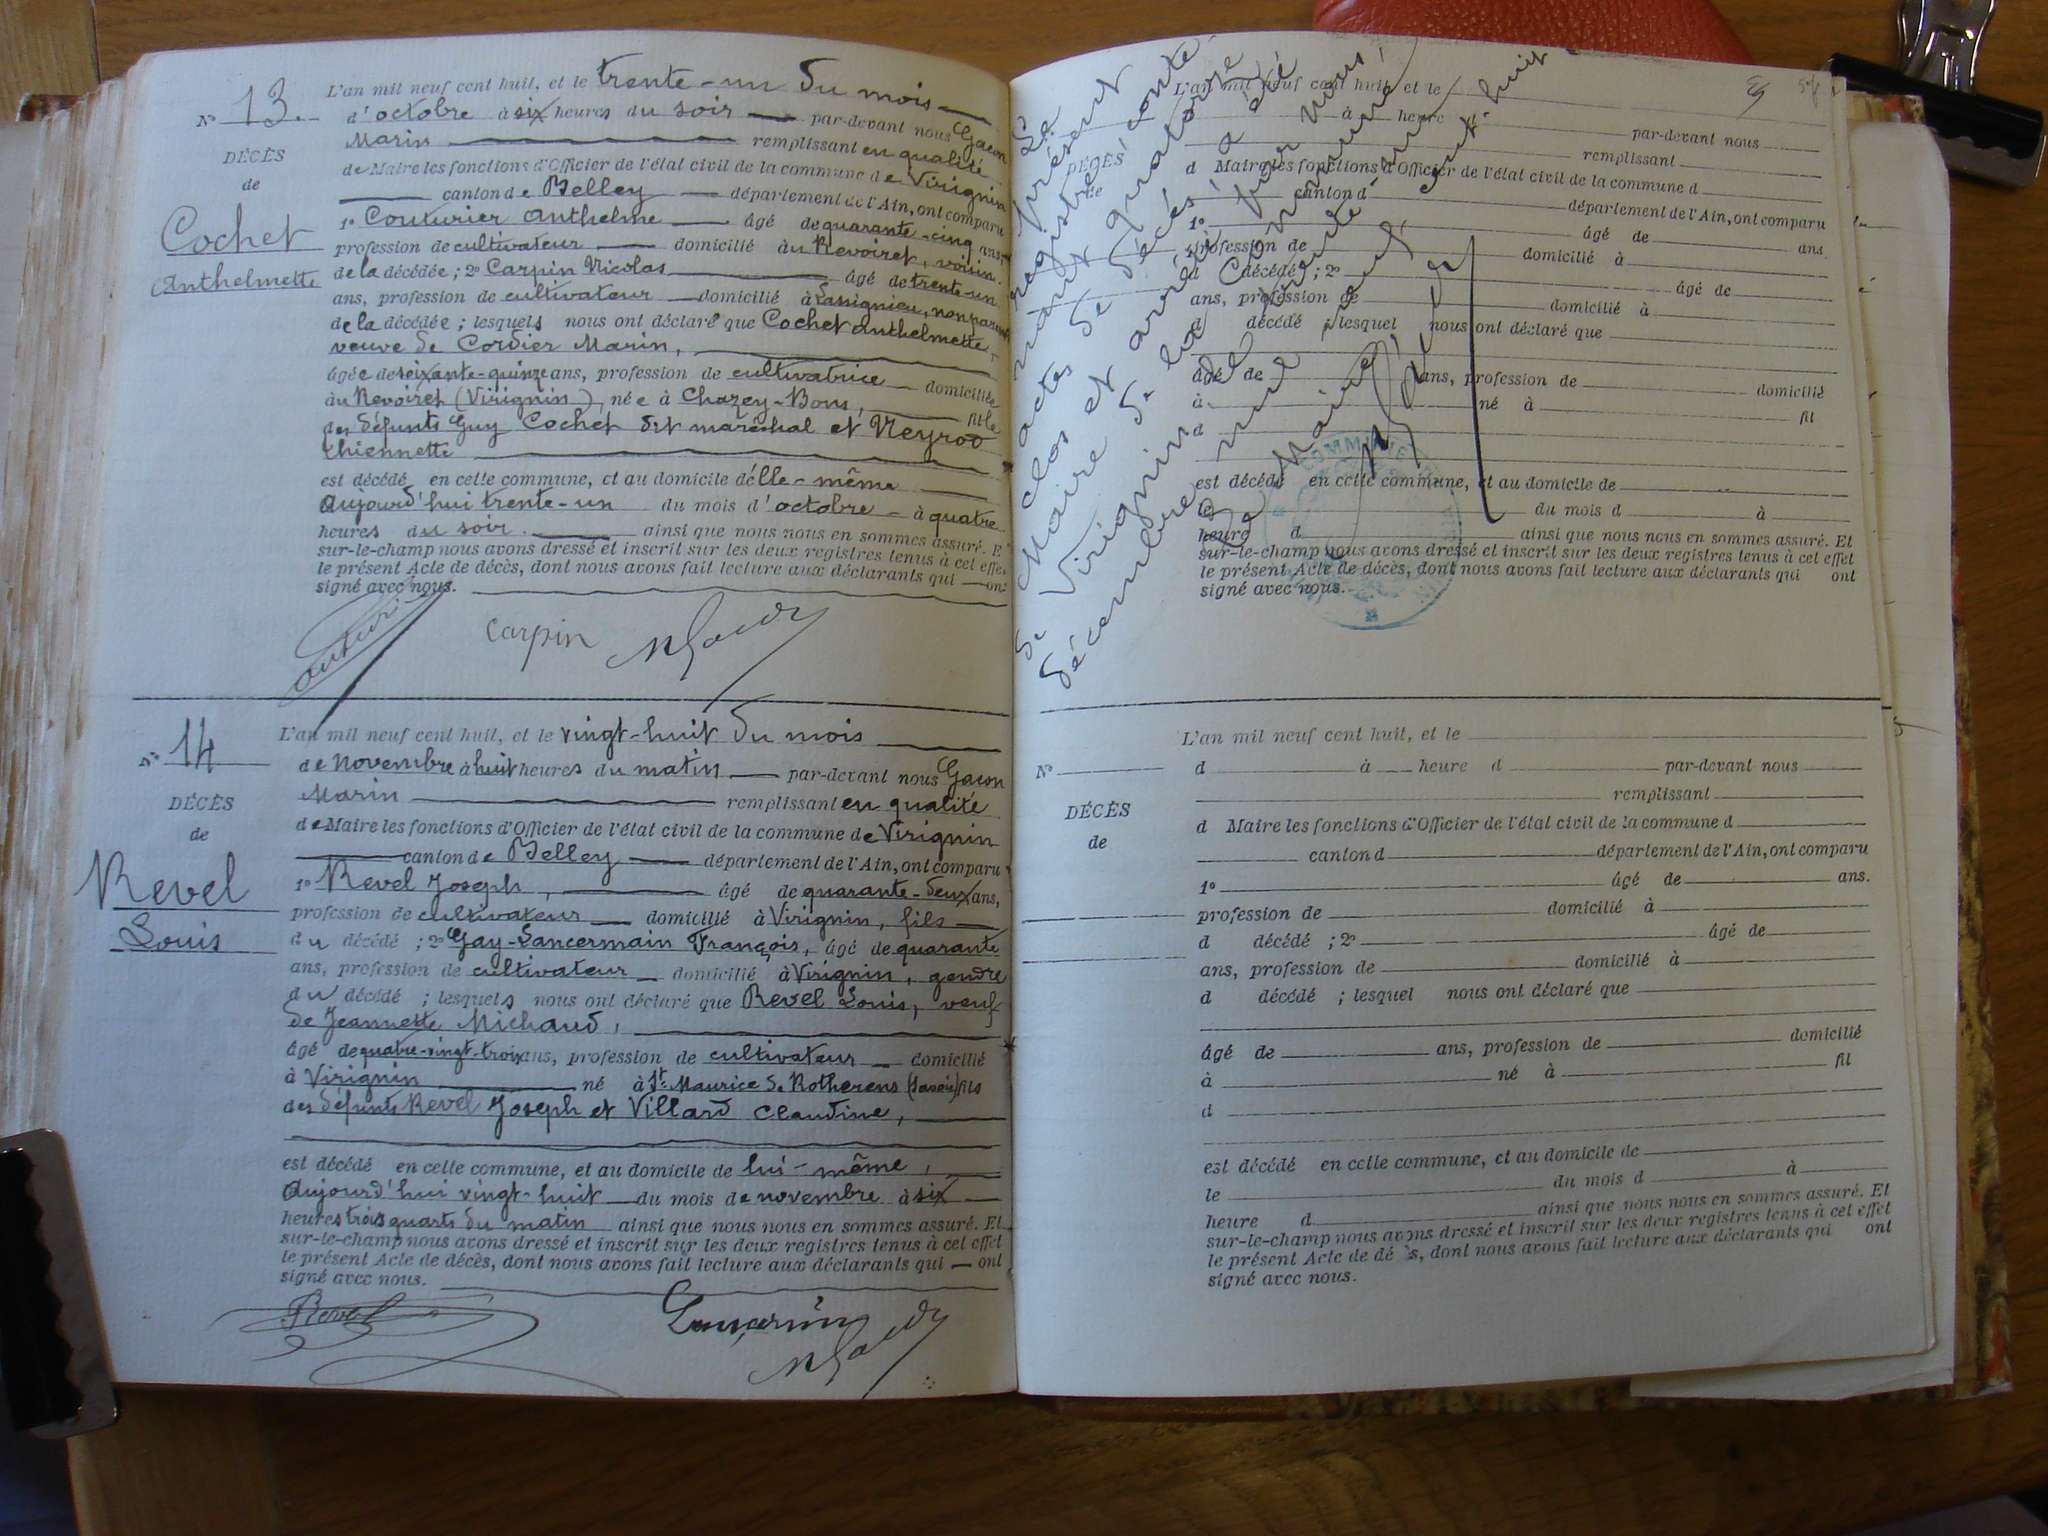 L'an mil neuf cent huit, et le trente-un du mois
N° 13. d'octobre à six heures du soir par-devant nous Gacon
Marin remplissant en qualité
DÉCÈS
de Maire les fonctions d'Officier de l'état civil de la commune de Virignin
de
canton de Belley département de l'Ain, ont comparu
Cochet
Anthelmette
1° Couturier Anthelme âgé de quarante-cinq ans,
profession de cultivateur domicilié au Revoiret, voisin
de la décédée ; 2° Carpin Nicolas âgé de trente-un
ans, profession de cultivateur domicilié à Lassignieu, non parent
de la décédée ; lesquels nous ont déclaré que Cochet Anthelmette,
veuve de Cordier Marin,
âgée de soixante-quinze ans, profession de cultivatrice domiciliée
au Revoiret (Virignin), née à Chazey-Bons, fille
des défunts Guy Cochet dit maréchal et Neyrod
thiennette
est décédé en cette commune, et au domicile d'elle-même
aujourd'hui trente-un du mois d'octobre à quatre
heures du soir. ainsi que nous nous en sommes assuré. Et
sur-le-champ nous avons dressé et inscrit sur les deux registres tenus à cet effet
le présent Acte de décès, dont nous avons fait lecture aux déclarants qui ont
signé avec nous.
Carpin
N° 14
L'an mil neuf cent huit, et le vingt-huit du mois
de novembre à huit heures du matin par-devant nous Gacon
Marin remplissant en qualité
DÉCÈS
de Maire les fonctions d'Officier de l'état civil de la commune de Virignin
de
canton de Belley département de l'Ain, ont comparu
Revel
Louis
1° Revel Joseph, âgé de quarante-deux ans,
profession de cultivateur domicilié à Virignin, fils
du décédé ; 2° Gay-Lancermain François, âgé de quarante
ans, profession de cultivateur domicilié à Virignin, gendre
du décédé ; lesquels nous ont déclaré que Revel Louis, veuf
de Jeannette Michaud,
âgé de quatre-vingt-trois ans, profession de cultivateur domicilié
à Virignin né à St Maurice de Rotherens (Savoie) fils
des défunts Revel Joseph et Villard Claudine,
est décédé en cette commune, et au domicile de lui-même,
aujourd'hui vingt-huit du mois de novembre à six
heures trois quarts du matin ainsi que nous nous en sommes assuré. Et
sur-le-champ nous avons dressé et inscrit sur les deux registres tenus à cet effet
le présent Acte de décès, dont nous avons fait lecture aux déclarants qui ont
signé avec nous.
Revel
Le
présent
registre conte-
nant quatorze
actes de décès a été
clos et arrêté par nous,
Maire de la commune
de Virignin, le trente-un
décembre mil neuf cent huit
Le Maire,
L'an mil neuf cent huit, et le
à heure d
par-devant nous
remplissant
DÉCÈS
d Maire les fonctions d'Officier de l'état civil de la commune d
de
canton d département de l'Ain, ont comparu
1° âgé de ans.
profession de domicilié à
d décédé ; 2° âgé de
ans, profession de domicilié à
d décédé ; lesquel nous ont déclaré que
âgé de ans, profession de domicilié
à né à fil
d
COMMUNE
est décédé en cette commune, et au domicile de
le du mois d à
heure d ainsi que nous nous en sommes assuré. Et
sur-le-champ nous avons dressé et inscrit sur les deux registres tenus à cet effet
le présent Acte de décès, dont nous avons fait lecture aux déclarants qui ont
signé avec nous.
L'an mil neuf cent huit, et le
N° d à heure d par-devant nous
remplissant
DÉCÈS
d Maire les fonctions d'Officier de l'état civil de la commune d
de
canton d département de l'Ain, ont comparu
1° âgé de ans.
profession de domicilié à
d décédé ; 2° âgé de
ans, profession de domicilié à
d décédé ; lesquel nous ont déclaré que
âgé de ans, profession de domicilié
à né à fil
d
est décédé en cette commune, et au domicile de
le du mois d à
heure d ainsi que nous nous en sommes assuré. Et
sur-le-champ nous avons dressé et inscrit sur les deux registres tenus à cet effet
le présent Acte de dé s, dont nous avons fait lecture aux déclarants qui ont
signé avec nous.